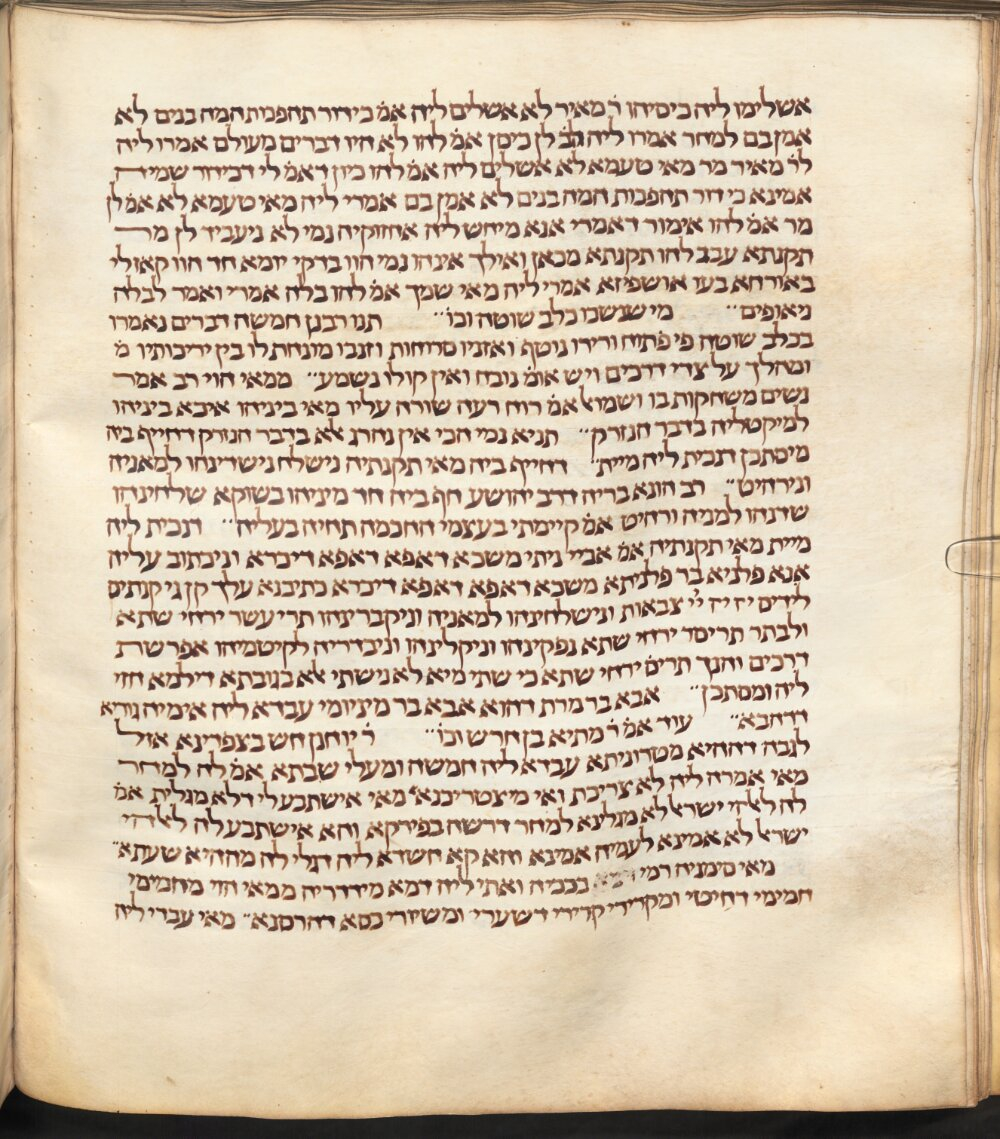 אשלימו ליה כיסיהו ר׳ מאיר לא אשלים ליה אמ׳ כי דור תהפכות המה בנים לא
אמון בם למחר אמרו ליה הב לן כיסן אמ׳ להו לא היו דברים מעולם אמרו ליה
לר׳ מאיר מר מאי טעמא לא אשלים ליה אמ׳ להו כיון דאמ׳ לי דכידור שמיה
אמינא כי דור תהפכות המה בנים לא אמון בם אמרי ליה מאי טעמא לא אמ׳ לן
מר אמ׳ להו אימור דאמרי אנא מיחש ליה אחזוקיה נמי לא ניעביד לן מר
תקנתא עבב להו תקנתא מכאן ואילך אינהו נמי הוו בדקי יומא חד הוו קאזלי
באורחא בעו אושפיזא אמרי ליה מאי שמך אמ׳ להו בלה אמרי ואמר לבלה
ניאופים׃ מי שנשכו כלב שוטה וכו׳׃ תנו רבנן חמשה דברים נאמרו
בכלב שוטה פיו פתוח ורירו נוטף ואזניו סרוחות וזנבו מונחת לו בין יריכותיו מ׳
ומהלך על צדי דרכים ויש אומ׳ נובח ואין קולו נשמע׃ ממאי הוי רב אמר
נשים משחקות בו ושמואל אמ׳ רוח רעה שורה עליו מאי ביניהו איכא ביניהו
למיקטליה בדבר הנזרק׃ תניא נמי הכי אין נהרג אלא בדבר הנזרק דחייף ביה
מיסתכן דנכית ליה מיית׃ דחייף ביה מאי תקנתיה נישלח נישדינהו למאניה
ונירהיט׃ רב הונא בריה דרב יהושע חף ביה חד מיניהו בשוקא שלחינהו
שדנהו למניה ורהיט אמ׳ קיימתי בעצמי החכמה תחיה בעליה׃ דנכית ליה
מיית מאי תקנתיה אמ׳ אביי ניתי משכא דאפא דאפא דיכרא וניכתוב עליה
אנא פלניא בר פלניתא משכא דאפא דאפא דיכרא כתיבנא עלך קנ׳ני קנתיס
לידים יה יה יי׳ צבאות ונישלחינהו למאניה וניקברינהו תרי עשר ירחי שתא
ולבתר תריסר ירחי שתא נפקינהו וניקלינהו וניבדריה לקיטמיהו אפרשת
דרכים והנך תריס׳ ירחי שתא כי שתי מיא לא נישתי אלא בגובתא דילמא חזי
ליה ומסתכן׃ אבא בר מרתא דהוא אבא בר מניומי עבדא ליה אימיה גובתא
דדהבא׃ עוד אמ׳ ר׳ מתיא בן חרש וכו׳׃ ר׳ יוחנן חש בצפרינא אזל
לגבה דההיא מטרוניתא עבדא ליה חמשה ומעלי שבתא אמ׳ לה למחר
מאי אמרה ליה לא צריכת ואי מיצטריכנא מאי אישתבעלי דלא מגלית אמ׳
לה לאלהי ישראל לא מגלינא למחר דרשה בפירקא והא אישתבע לה לאלהי
ישראל לא אמינא לעמיה אמינא והא קא חשדא ליה דגלי לה מההיא שעתא׃
מאי סימניה רמי בככיה ואתי ליה דמא מידדריה ממאי הוי מחמימי
חמימי דחיטי ומקרירי קרירי דשערי ומשיורי כסא דהרסנא׃ מאי עבדי ליה